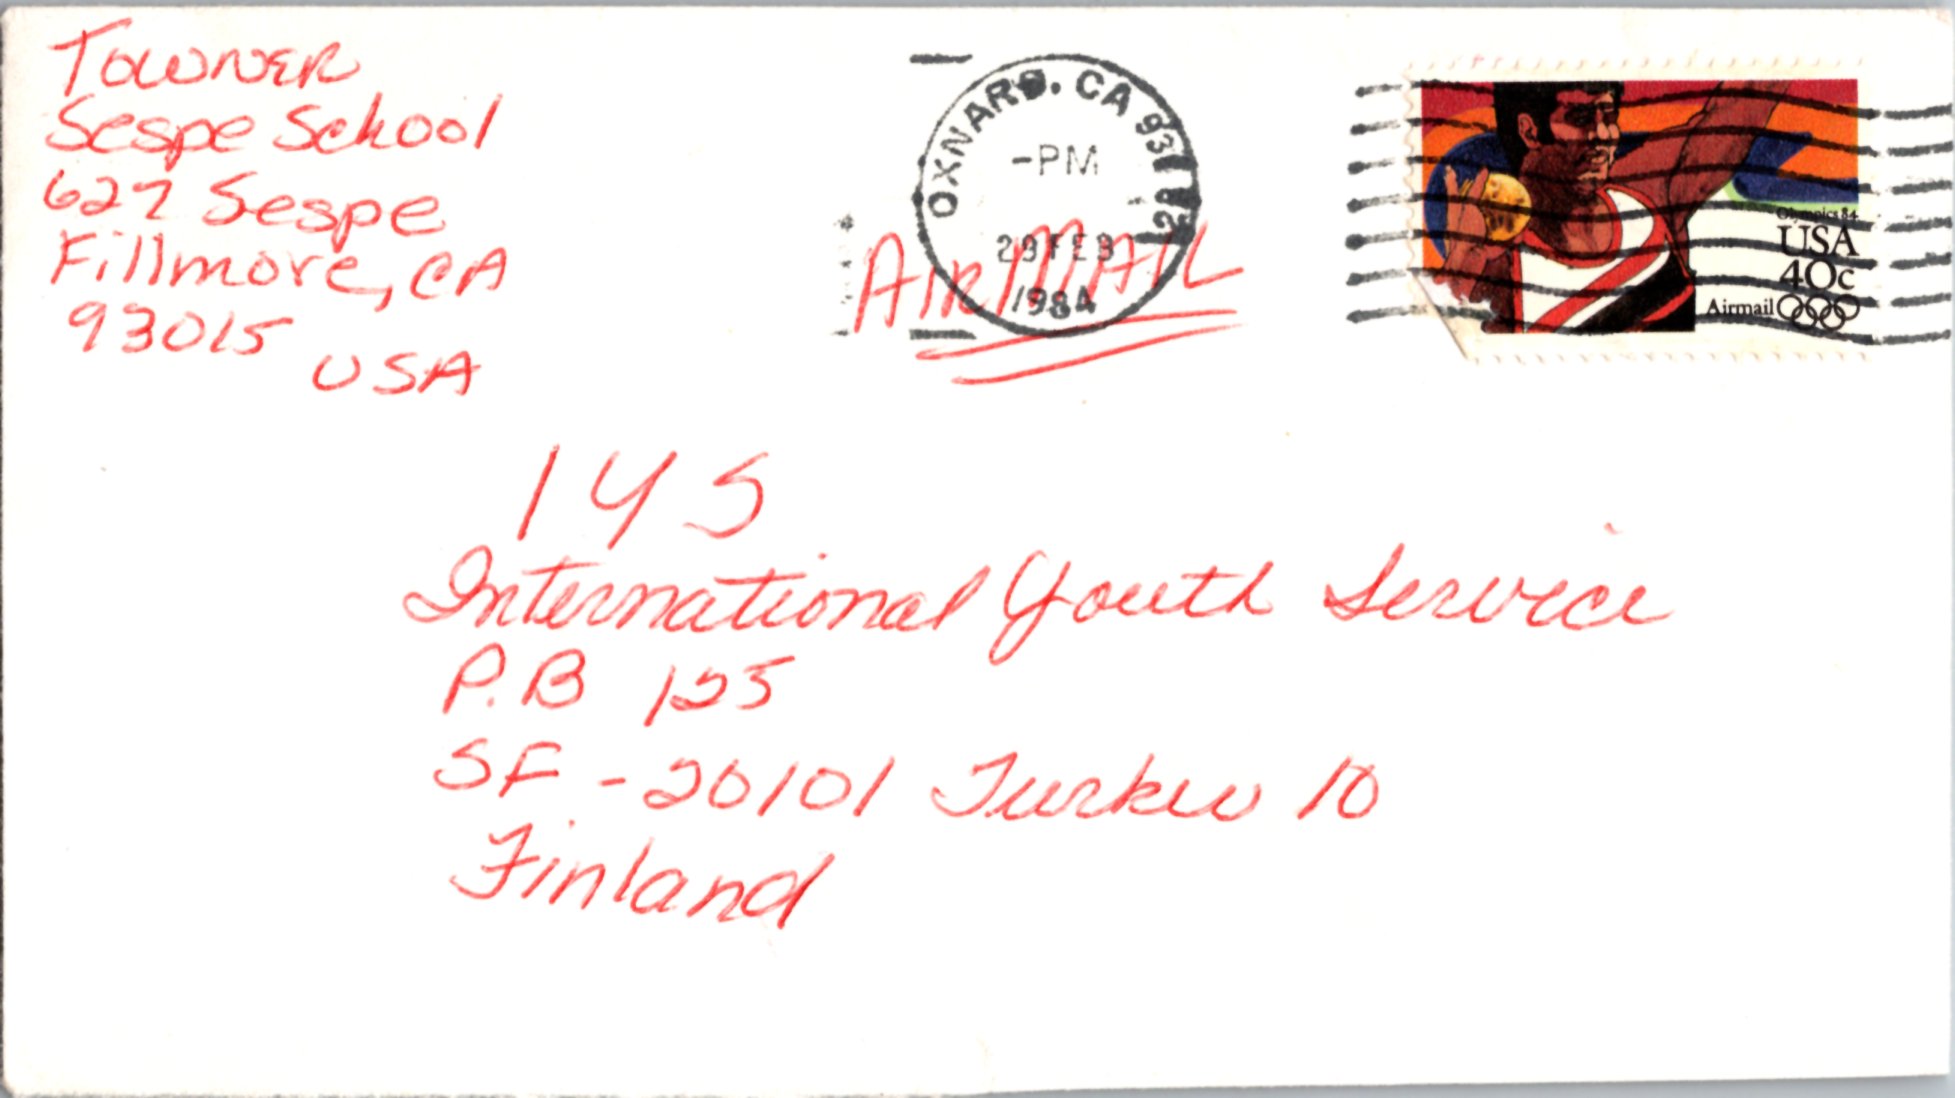 TOWNER
Sespe School
627 Sespe
Fillmore, CA
93015
USA
OXNARD, CA 93
-PM
29 FEB
1984
AIRMAIL
Olympics 84
USA
40c
Airmail
IYS
International Youth Service
P.B 125
SF - 20101 Turku 10
Finland